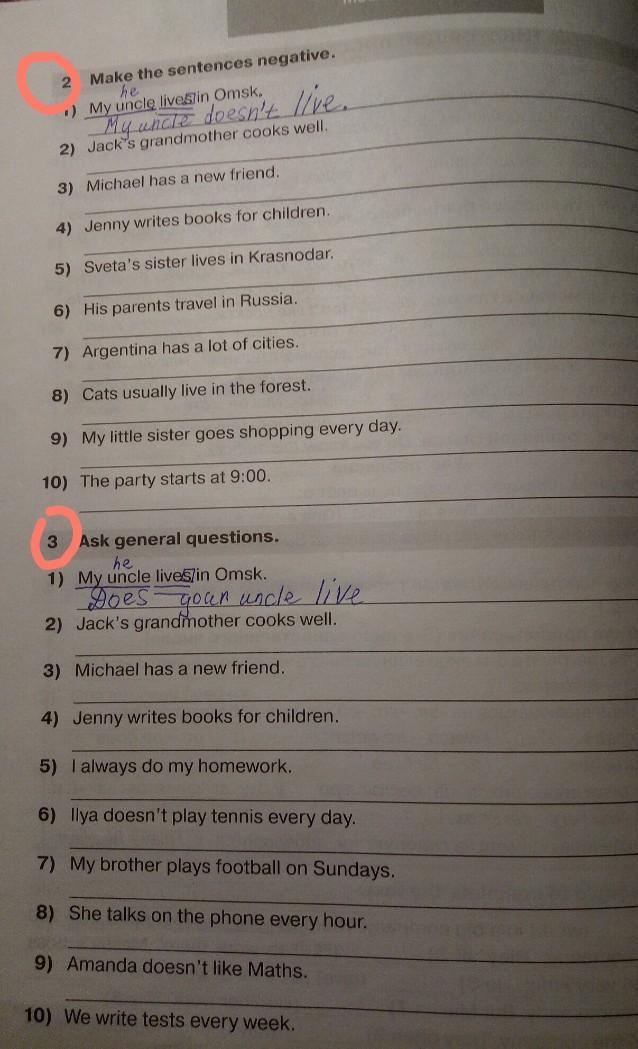 2 Make the sentences negative.
he
1) My uncle lives in Omsk.
My uncle doesn't live.
2) Jack's grandmother cooks well.
3) Michael has a new friend.
4) Jenny writes books for children.
5) Sveta's sister lives in Krasnodar.
6) His parents travel in Russia.
7) Argentina has a lot of cities.
8) Cats usually live in the forest.
9) My little sister goes shopping every day.
10) The party starts at 9:00.
3 Ask general questions.
he
1) My uncle lives in Omsk.
Does your uncle live
2) Jack's grandmother cooks well.
3) Michael has a new friend.
4) Jenny writes books for children.
5) I always do my homework.
6) Ilya doesn't play tennis every day.
7) My brother plays football on Sundays.
8) She talks on the phone every hour.
9) Amanda doesn't like Maths.
10) We write tests every week.